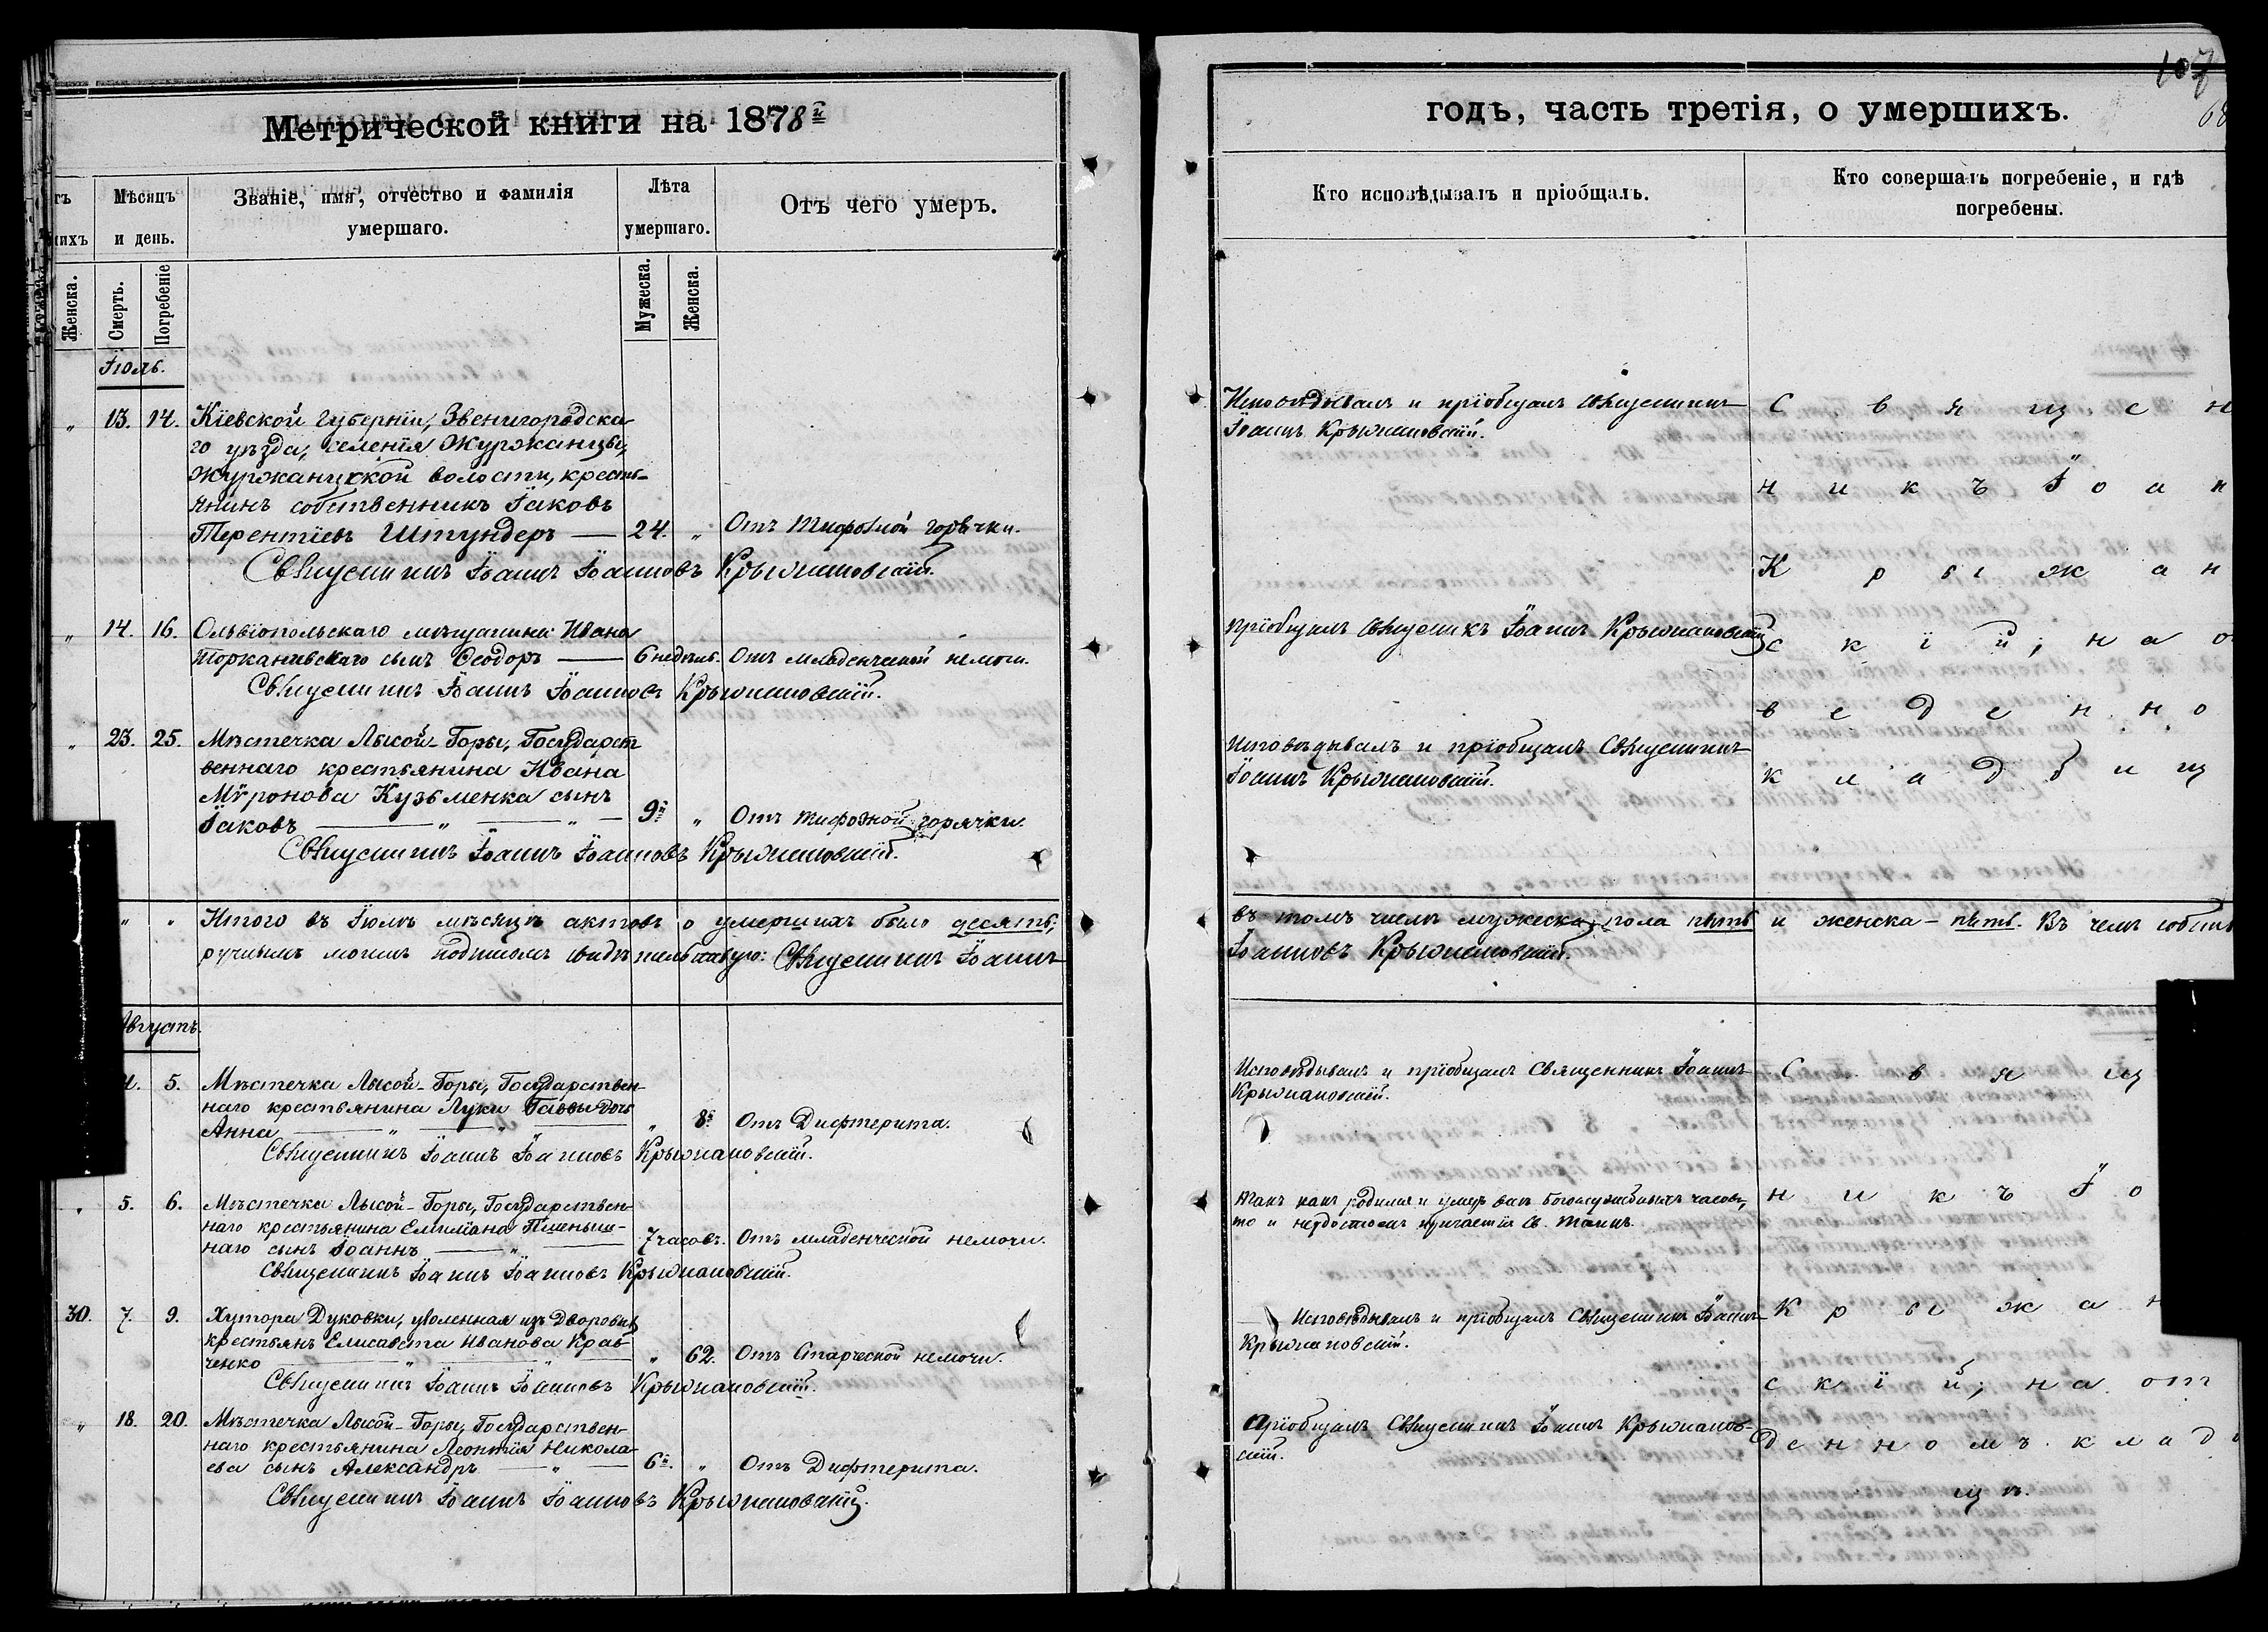 107
68
Метрической книги на 1878й
годъ, часть третія, о умершихъ.
Мѣсяцъ и день.
Званіе, имя, отчество и фамилія умершаго.
Лѣта умершаго.
Отъ чего умеръ.
Кто исповѣдывалъ и пріобщалъ.
Кто совершалъ погребеніе, и гдѣ погребены.
Женска.
Смерть.
Погребеніе
Мужеска.
Женска.
Іюль.
„ 13. 14. Кіевской губерніи, Звенигородска-
го уѣзда, селенія Журжанцы,
Журжанцской волости, кресть-
янинъ собственникъ Іаковъ
Терентіевъ Штундеръ — 24. „ Отъ тифозной горячки.
Священникъ Іоаннъ Іоанновъ Крыжановскій.
Исповѣдывалъ и пріобщалъ Священникъ
Іоаннъ Крыжановскій.
„ 14. 16. Ольвіопольскаго мѣщанина Ивана
сынъ Ѳеодоръ — 6 недѣль. Отъ младенческой немочи.
Священникъ Іоаннъ Іоанновъ Крыжановскій.
Пріобщалъ Священникъ Іоаннъ Крыжановскій
„ 23. 25. Мѣстечка Лысой-Горы, Государст
веннаго крестьянина Ивана
Мѵронова Кузьменка сынъ
Іаковъ — „ — „ — 9й „ Отъ тифозной горячки.
Священникъ Іоаннъ Іоанновъ Крыжановскій.
Исповѣдывалъ и пріобщалъ Священникъ
Іоаннъ Крыжановскій.
С в я щ е н
н и к ъ І о а н
К р ы ж а н
с к і й; н а о
в е д е н н о
к л а д б и щ
„ „ Итого въ Іюлѣ мѣсяцѣ актовъ о умершихъ было десять;
въ томъ числѣ мужеска пола пять и женска — пять. Въ чемъ собствен
ручнымъ моимъ подписомъ свидѣтельствую: Священникъ Іоаннъ
Іоанновъ Крыжановскій.
Августъ.
4. 5. Мѣстечка Лысой-Горы, Государствен-
наго крестьянина Луки Саввы дочь
Анна — „ — „ — „ 8. Отъ Дифтерита.
Священникъ Іоаннъ Іоанновъ Крыжановскій.
Исповѣдывалъ и пріобщалъ Священникъ Іоаннъ
Крыжановскій.
„ 5. 6. Мѣстечка Лысой-Горы, Государствен-
наго крестьянина Емиліана Пшенъш-
наго сынъ Іоаннъ — „ — 7 часовъ. Отъ младенческой немочи.
Священникъ Іоаннъ Іоанновъ Крыжановскій.
Такъ какъ родился и умеръ внѣ богослужебныхъ часовъ,
то и неудостоенъ причастія Св. Таинъ.
30. 7. 9. Хутора Дуковки, уволенная изъ дворовыхъ
крестьянъ Елисавета Иванова Крав-
ченко — „ — „ — „ 62. Отъ Старческой немочи.
Священникъ Іоаннъ Іоанновъ Крыжановскій.
Исповѣдывалъ и пріобщалъ Священникъ Іоаннъ
Крыжановскій.
„ 18. 20. Мѣстечка Лысой-Горы, Государствен-
наго крестьянина Леонтія Никола-
ева сынъ Александръ — „ — 6й. „ Отъ Дифтерита.
Священникъ Іоаннъ Іоанновъ Крыжановскій.
Пріобщалъ Священникъ Іоаннъ Крыжанов-
скій.
С в я щ
н и к ъ І о
К р ы ж а н
с к і й; н а от
д е н н о м ъ к л а д б
щ ѣ.